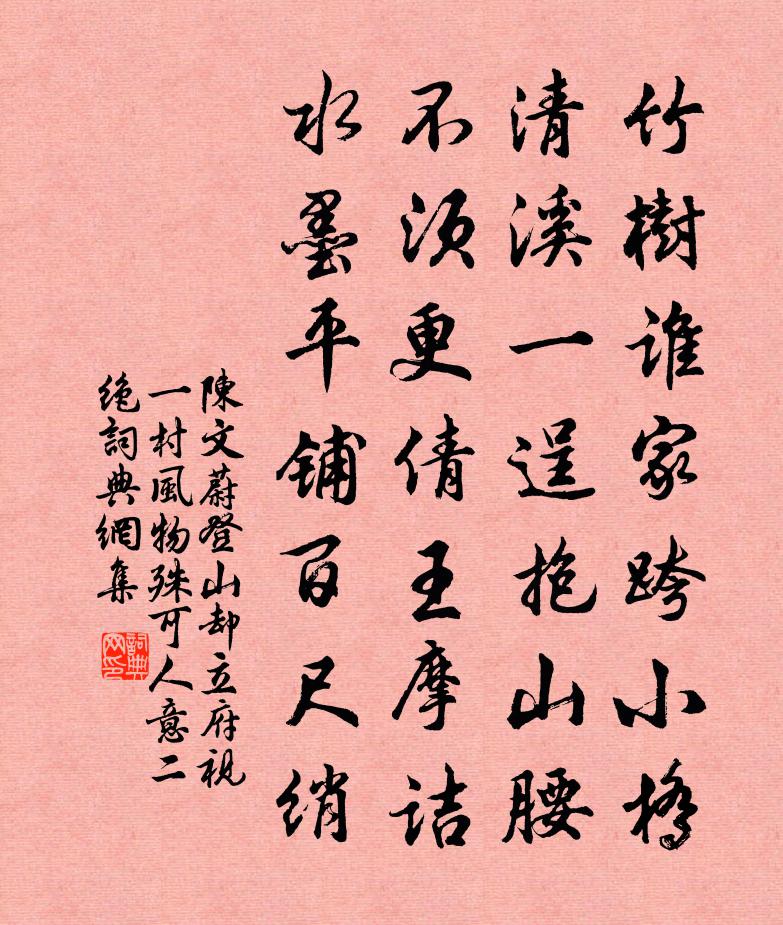 竹樹誰家跨小橋
清溪一逕抱山腰
不須更倩王摩詰
水墨平鋪百尺綃
陳文蔚登山却立府視
一村風物殊可人意二
絶詞典網集
詞典網印